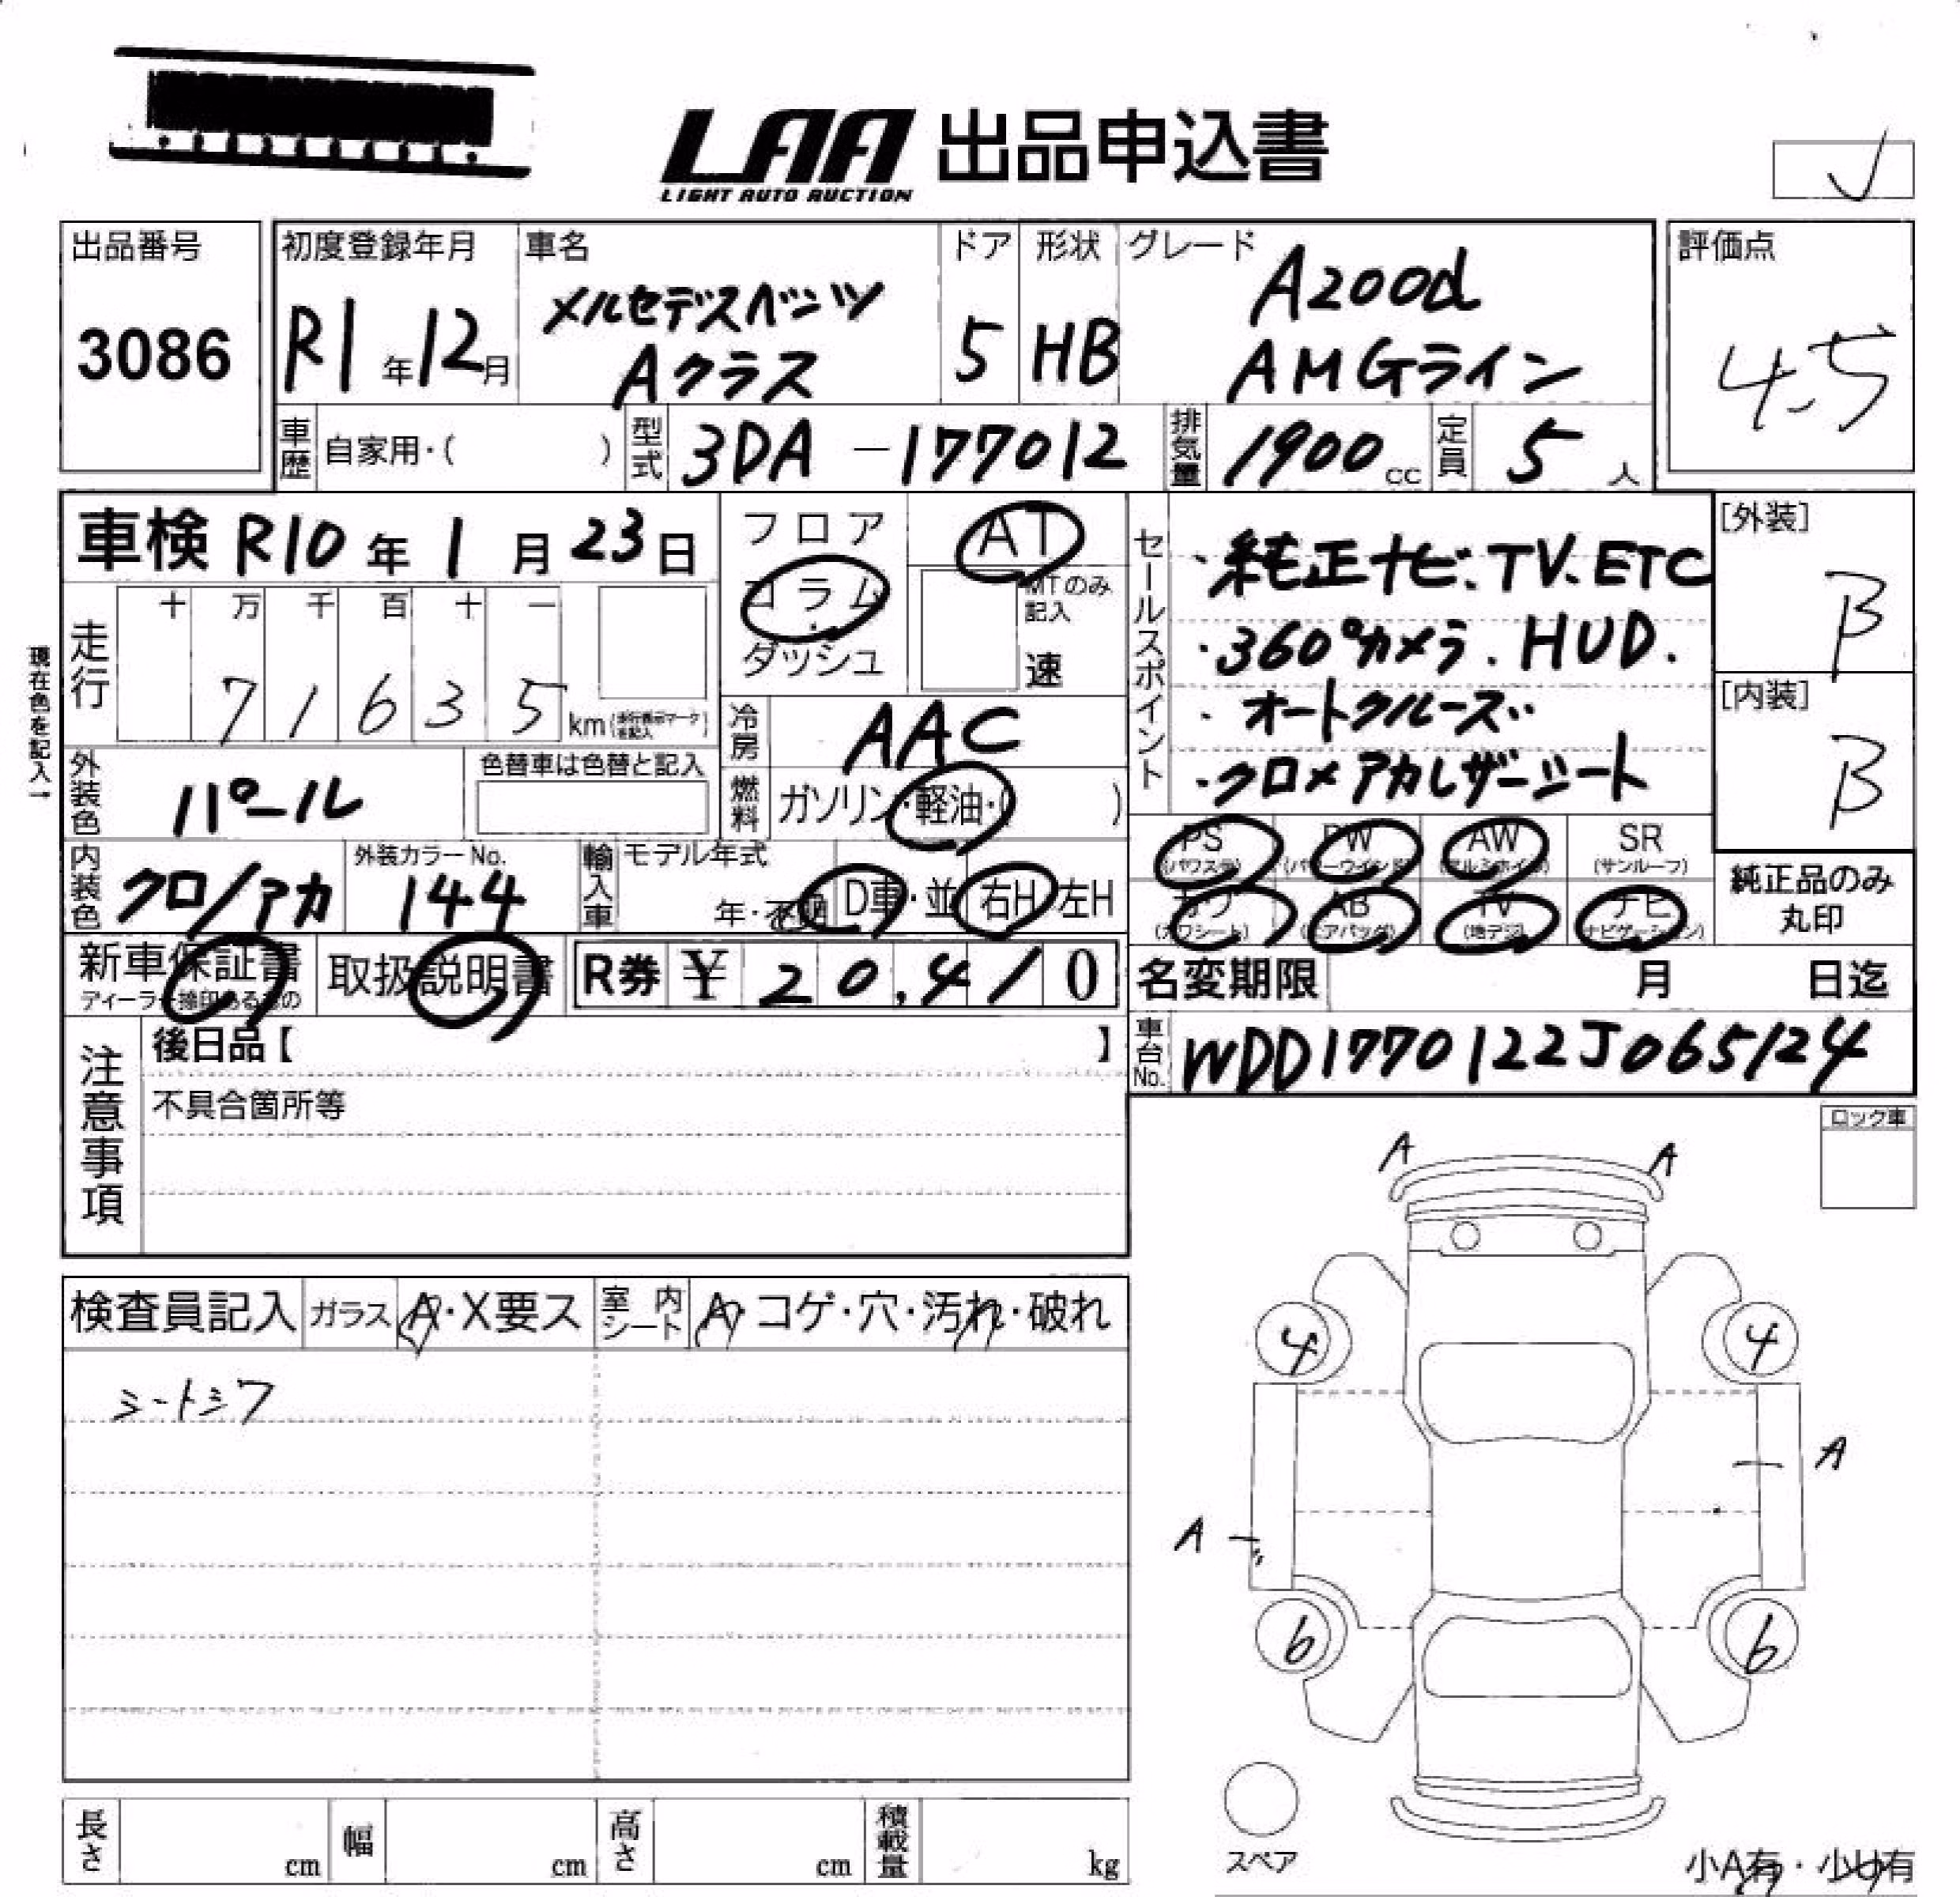 LAA 出品申込書
LIGHT AUTO AUCTION
出品番号
3086
初度登録年月
R1年12月
車名
メルセデスベンツ
Aクラス
ドア
5
形状
HB
グレード
A200d
AMGライン
評価点
4.5
車歴 自家用・( )
型式 3DA-177012
排気量 1900cc
定員 5人
車検 R10年1月23日
フロア
コラム
ダッシュ
AT
MTのみ記入
速
セールスポイント
・純正ナビ.TV.ETC
・360°カメラ.HUD.
・オートクルーズ
・クロ×アカレザーシート
[外装]
B
[内装]
B
現在色を記入→
走行
十 万 千 百 十 一
7 1 6 3 5 km
冷房 AAC
外装色 パール
色替車は色替と記入
燃料 ガソリン・軽油・( )
内装色 クロ/アカ
外装カラーNo.
144
輸入車 モデル年式
年・不明
D車・並
右H 左H
PS (パワステ)
PW (パワーウインド)
AW (アルミホイル)
SR (サンルーフ)
カワ (カワシート)
AB (エアバッグ)
TV (地デジ)
ナビ (ナビゲーション)
純正品のみ丸印
新車保証書
ディーラー捺印あるもの
取扱説明書
R券 ¥ 20,410
名変期限 月 日迄
注意事項
後日品【 】
不具合箇所等
車台No. WDD1770122J065124
ロック車
検査員記入
ガラス A・X要ス
室内シート A・コゲ・穴・汚れ・破れ
シートシワ
A
A
4
4
A
A
6
6
スペア
長さ cm
幅 cm
高さ cm
積載量 kg
小A有・小U有